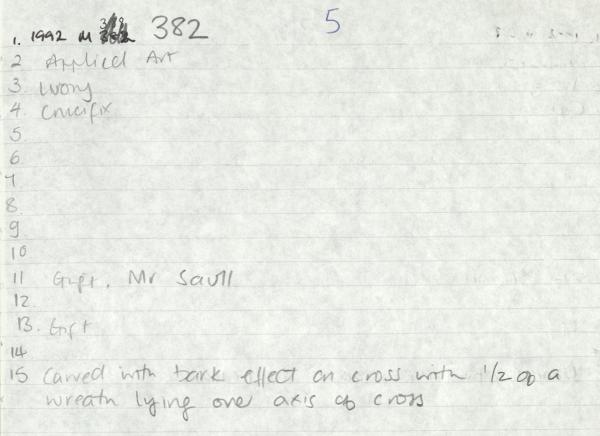 5
1. 1992 M 382
2 Applied Art
3 Ivory
4. Crucifix
5
6
7
8.
9
10
11 Gift. Mr Saull
12
13. Gift
14
15 Carved with bark effect on cross with 1/2 of a
wreath lying over axis of cross